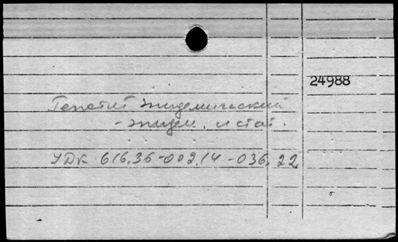 24988
Гепатит эпидемический
- эпидем. и стат.
УДК 616.36-002.14-036.22